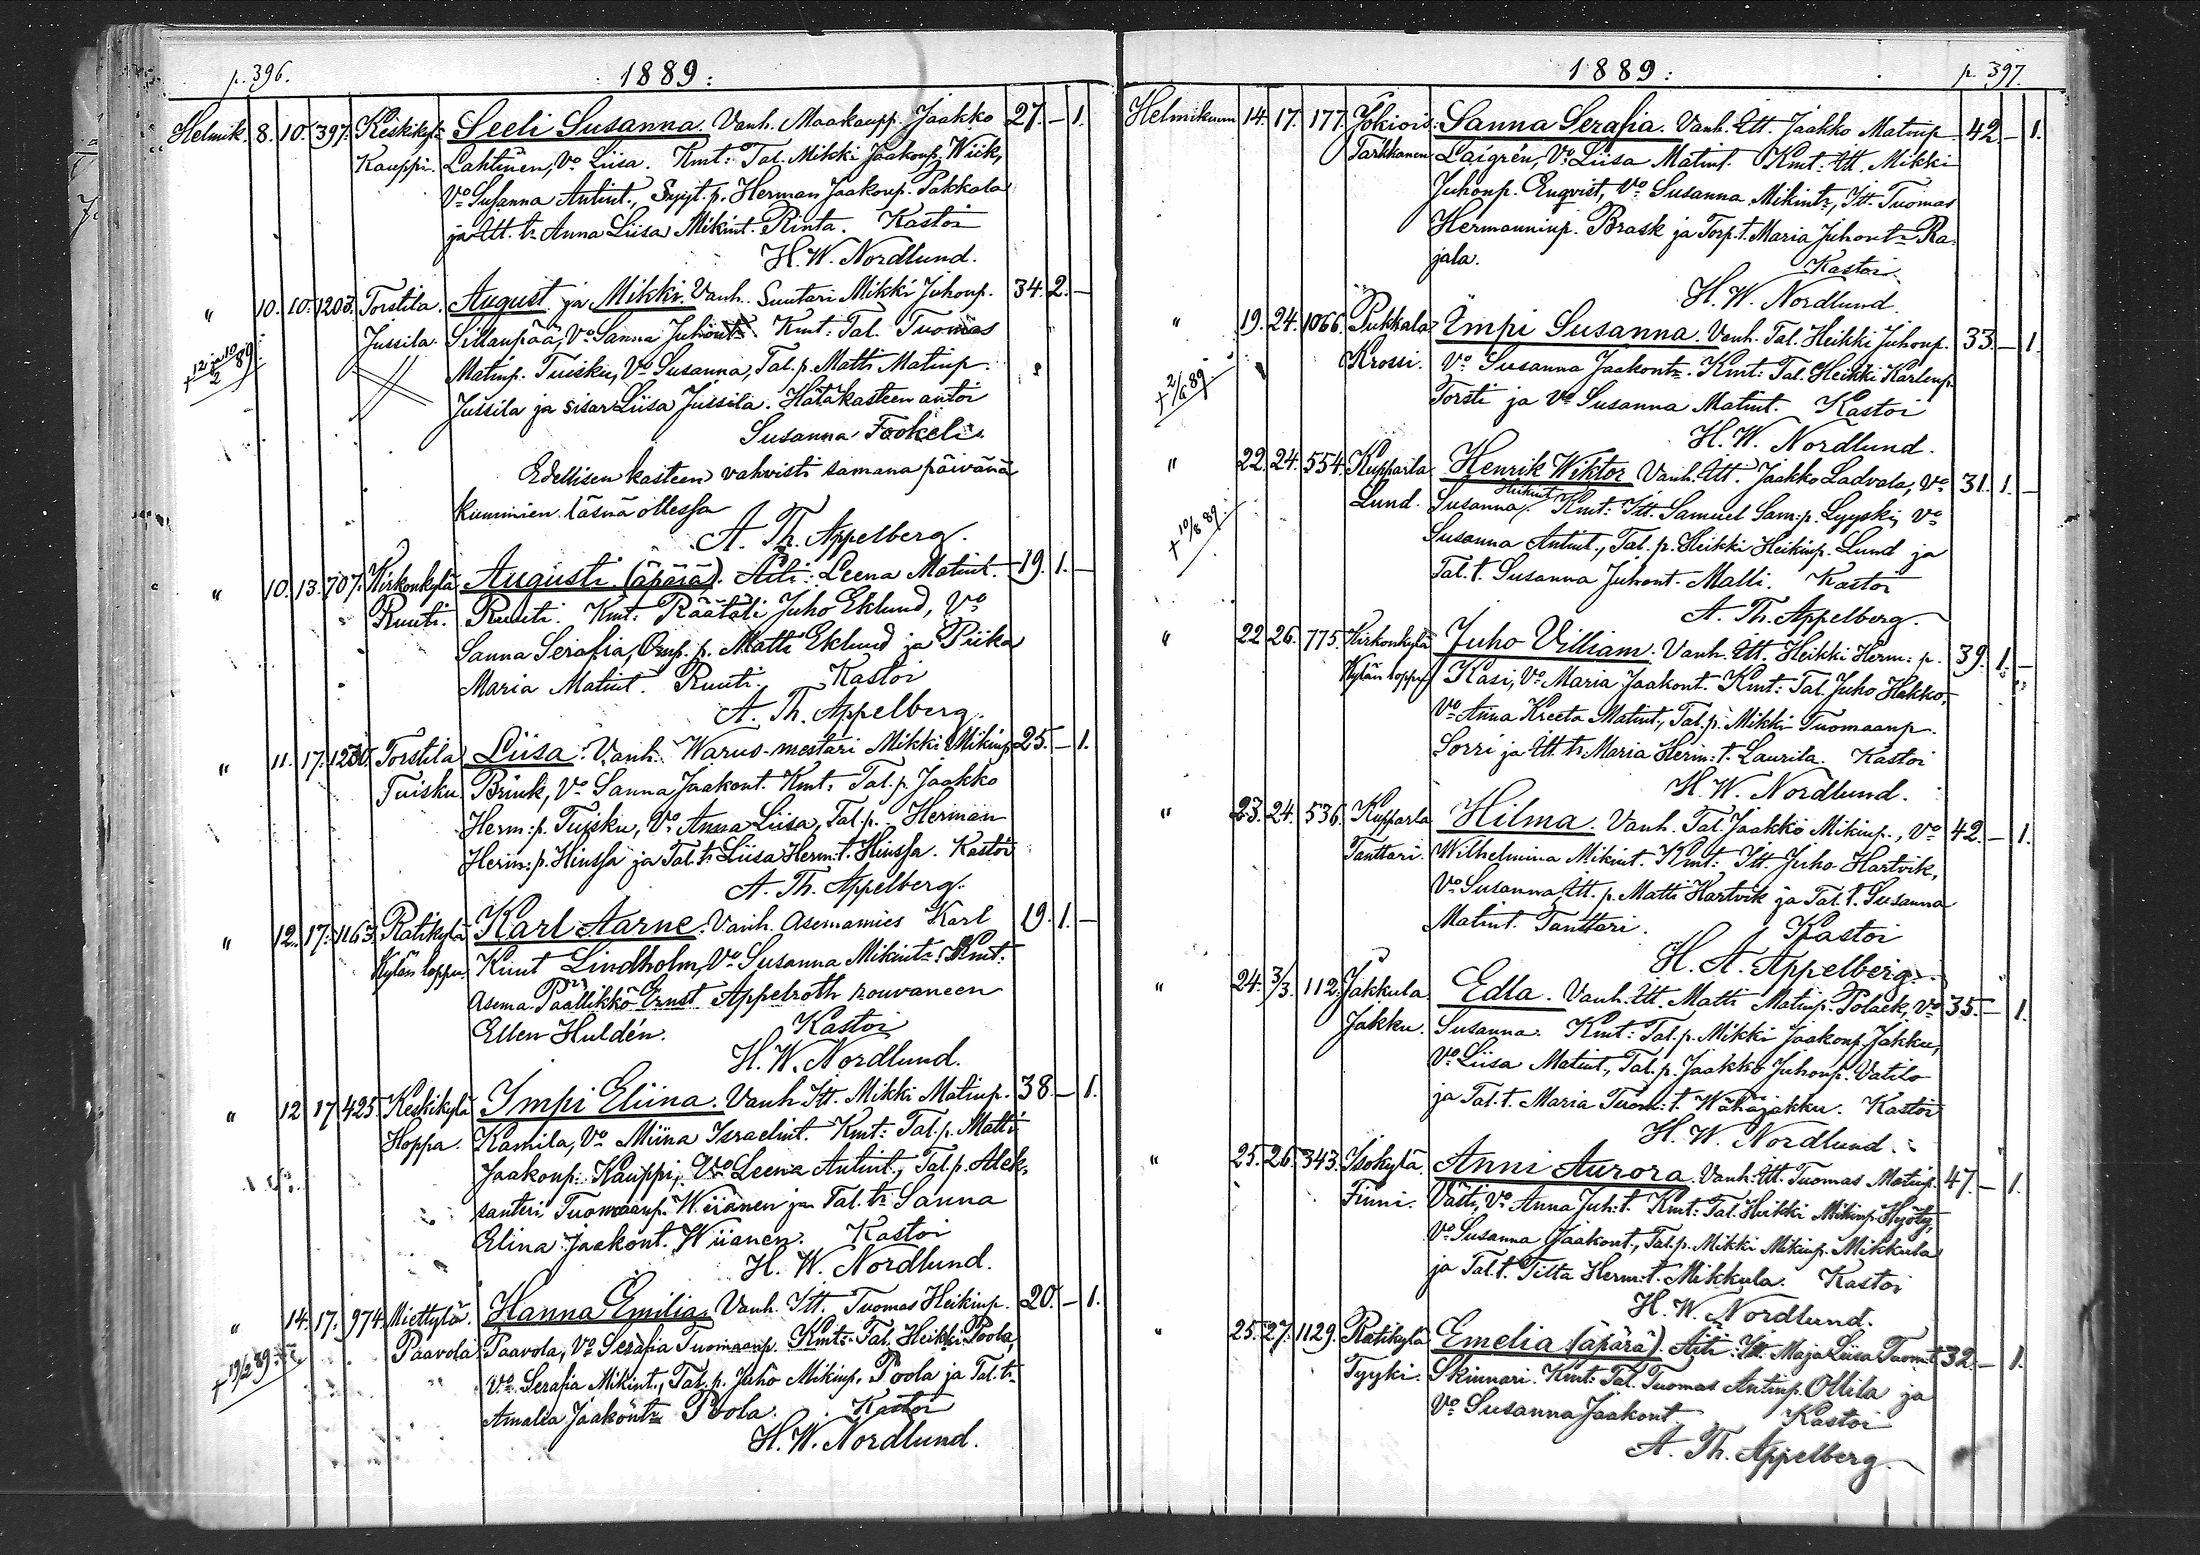 p. 396.
1889:
Helmik. 8. 10. 397. Keskikylä Seeli Susanna. Vanh. Maakaupp. Jaakko 27. – 1.
Kauppi. Lahtinen, Vo Liisa. Kmt: Tal. Mikki Jaakonp. Wiik,
Vo Susanna Antint., Syyt. p. Herman Jaakonp. Pakkala
ja Itt. tr Anna Liisa Mikint. Rinta. Kastoi
H. W. Nordlund.
" 10. 10. 1203. Torstila. August ja Mikki. Vanh. Suutari Mikki Juhonp. 34. 2. –
Jussila. Sillanpää, Vo Sanna Juhont. Kmt: Tal. Tuomas
+ 12 ja 10/2 89.
Matinp. Tuisku, Vo Susanna, Tal. p. Matti Matinp.
Jussila ja sisar Liisa Jussila. Hätäkasteen antoi
Susanna Fookelis
Edellisen kasteen vahvisti samana päivänä
kummien läsnä ollessa
A. Th. Appelberg.
" 10. 13. 707. Kirkonkylä Augusti (äpärä). Äiti: Leena Matint. 19. 1. –
Ruuti. Ruuti. Kmt: Räätäli Juho Eklund, Vo
Sanna Serafia, Omp. p. Matti Eklund ja Piika
Maria Matint. Ruuti. Kastoi
A. Th. Appelberg.
" 11. 17. 1230. Torstila Liisa. Vanh. Warus-mestari Mikki Mikinp. 25. – 1.
Tuisku. Brink, Vo Sanna Jaakont. Kmt: Tal. p. Jaakko
Herm: p. Tuisku, Vo Anna Liisa, Tal. p. Herman
Herm: p. Hinssa ja Tal. tr Liisa Herm: t. Hinssa. Kastoi
A. Th. Appelberg.
" 12. 17. 1163. Ratikylä Karl Aarne. Vanh. Asemamies Karl 19. 1. –
Kylän loppu. Knut Lindholm, Vo Susanna Mikint. Kmt:
Asema Päällikkö Ernst Appelroth rouvaneen
Ellen Huldén. Kastoi
H. W. Nordlund.
" 12 17 425 Keskikylä Impi Eliina. Vanh. Itt. Mikki Matinp. 38 – 1.
Hoppa. Kamila, Vo Miina Israelint. Kmt: Tal. p. Matti
Jaakonp. Kauppi, Vo Leena Antint., Tal. p. Alek-
santeri Tuomaanp. Wiianen ja Tal. tr Sanna
Elina Jaakont. Wiianen. Kastoi
H. W. Nordlund.
" 14. 17. 974. Miettylä. Hanna Emilia. Vanh. Itt. Tuomas Heikinp. 20. – 1.
+ 19/2 89.
Paavola Paavola, Vo Serafia Tuomaanp. Kmt: Tal. Heikki Poola,
Vo Serafia Mikint., Tal. p. Juho Mikinp. Poola ja Tal. tr
Amalia Jaakontr Poola. Kastoi
H. W. Nordlund.
1889:
p. 397.
Helmikuun 14. 17. 177. Jokiois. Sanna Serafia. Vanh. Itt. Jaakko Matinp. 42. – 1.
Tarkkanen Laigrén, Vo Liisa Matint. Kmt: Itt. Mikki
Juhonp. Enqvist, Vo Susanna Mikintr, Itt. Tuomas
Hermanninp. Brask ja Torp. t. Maria Juhontr Ra-
jala. Kastoi
H. W. Nordlund.
" 19. 24. 1066. Pukkala Impi Susanna. Vanh. Tal. Heikki Juhonp. 33. – 1.
+ 2/6 89.
Krossi. Vo Susanna Jaakontr. Kmt: Tal. Heikki Karlenp.
Torsti ja Vo Susanna Matint. Kastoi
H. W. Nordlund.
" 22. 24. 554. Kupparla Henrik Wiktor. Vanh. Itt. Jaakko Ladvala, Vo 31. 1. –
+ 10/8 89.
Lund. Susanna Heikint. Kmt: Itt. Samuel Sam: p. Lyyski, Vo
Susanna Antint., Tal. p. Heikki Heikinp. Lund ja
Tal. t. Susanna Juhont. Malli. Kastoi
A. Th. Appelberg.
" 22 26. 775. Kirkonkylä Juho Villiam. Vanh. Itt. Heikki Herm: p. 39. 1. –
Kylän loppu Kasi, Vo Maria Jaakont. Kmt: Tal. Juho Hakko,
Vo Anna Kreeta Matint., Tal. p. Mikki Tuomaanp.
Sorri ja Itt. tr Maria Herm: t. Laurila. Kastoi
H. W. Nordlund.
" 23. 24. 536. Kupparla Hilma. Vanh. Tal. Jaakko Mikinp., Vo 42. – 1.
Tanttari. Wilhelmina Mikint. Kmt: Itt. Juho Hartvik,
Vo Susanna, Itt. p. Matti Hartvik ja Tal. t. Susanna
Matint. Tanttari. Kastoi
H. A. Appelberg.
" 24. 3/3. 112. Jakkula Edla. Vanh. Itt. Matti Matinp. Polaek, Vo 35. – 1.
Jakku. Susanna. Kmt: Tal. p. Mikki Jaakonp. Jakku,
Vo Liisa Matint., Tal. p. Jaakko Juhonp. Vatilo
ja Tal. t. Maria Tuom: t. Wähäjakku. Kastoi
H. W. Nordlund.
" 25. 26. 343. Isokylä. Anni Aurora. Vanh. Itt. Tuomas Matinp. 47. – 1.
Finni. Västi, Vo Anna Juh: t. Kmt: Tal. Heikki Mikinp. Hyöty,
Vo Susanna Jaakont., Tal. p. Mikki Mikinp. Mikkula
ja Tal. t. Tilta Herm: t. Mikkula. Kastoi
H. W. Nordlund.
" 25. 27. 1129. Ratikylä Emelia (äpärä). Äiti: Itt. Maja Liisa Tuom: t. 32. – 1.
Tyyki. Skinnari. Kmt: Tal. Tuomas Antinp. Ollila ja
Vo Susanna Jaakont. Kastoi
A. Th. Appelberg.